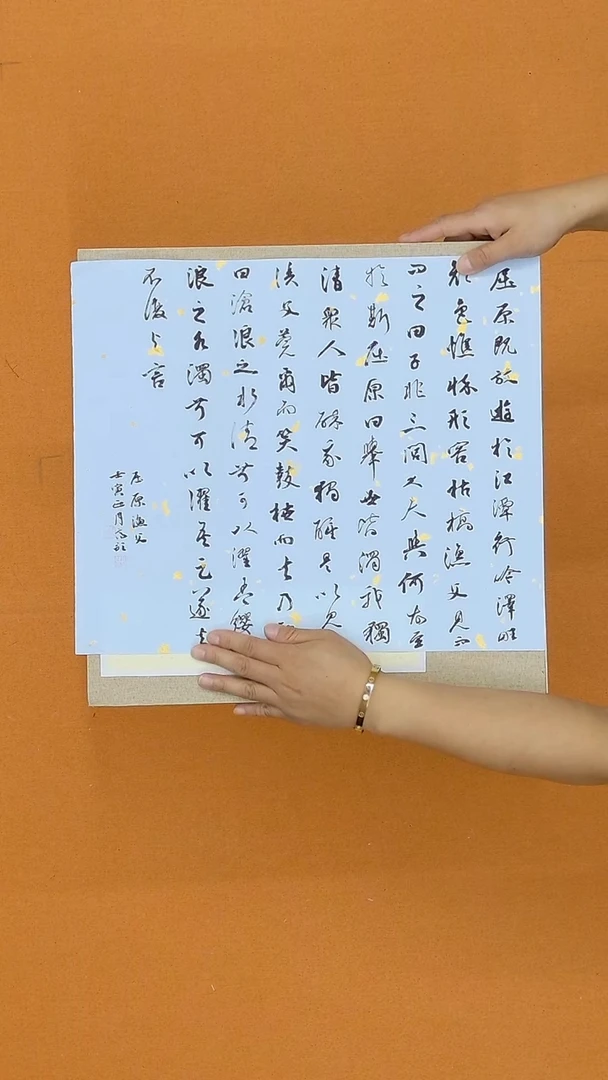 屈原既放遊於江潭行吟澤畔
顏色憔悴形容枯槁漁父見而
問之曰子非三閭大夫與何故至
於斯屈原曰舉世皆濁我獨
清眾人皆醉我獨醒是以見
漁父莞爾而笑鼓枻而去乃歌
曰滄浪之水清兮可以濯吾纓
浪之水濁兮可以濯吾足遂去
不復與言
屈原漁父
壬寅正月